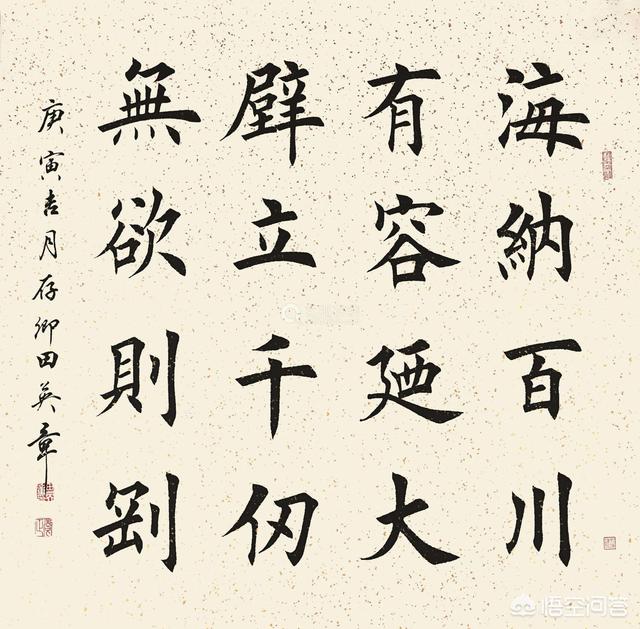 海納百川
有容廼大
壁立千仞
無欲則剛
庚寅吉月存卿田英章
悟空问答